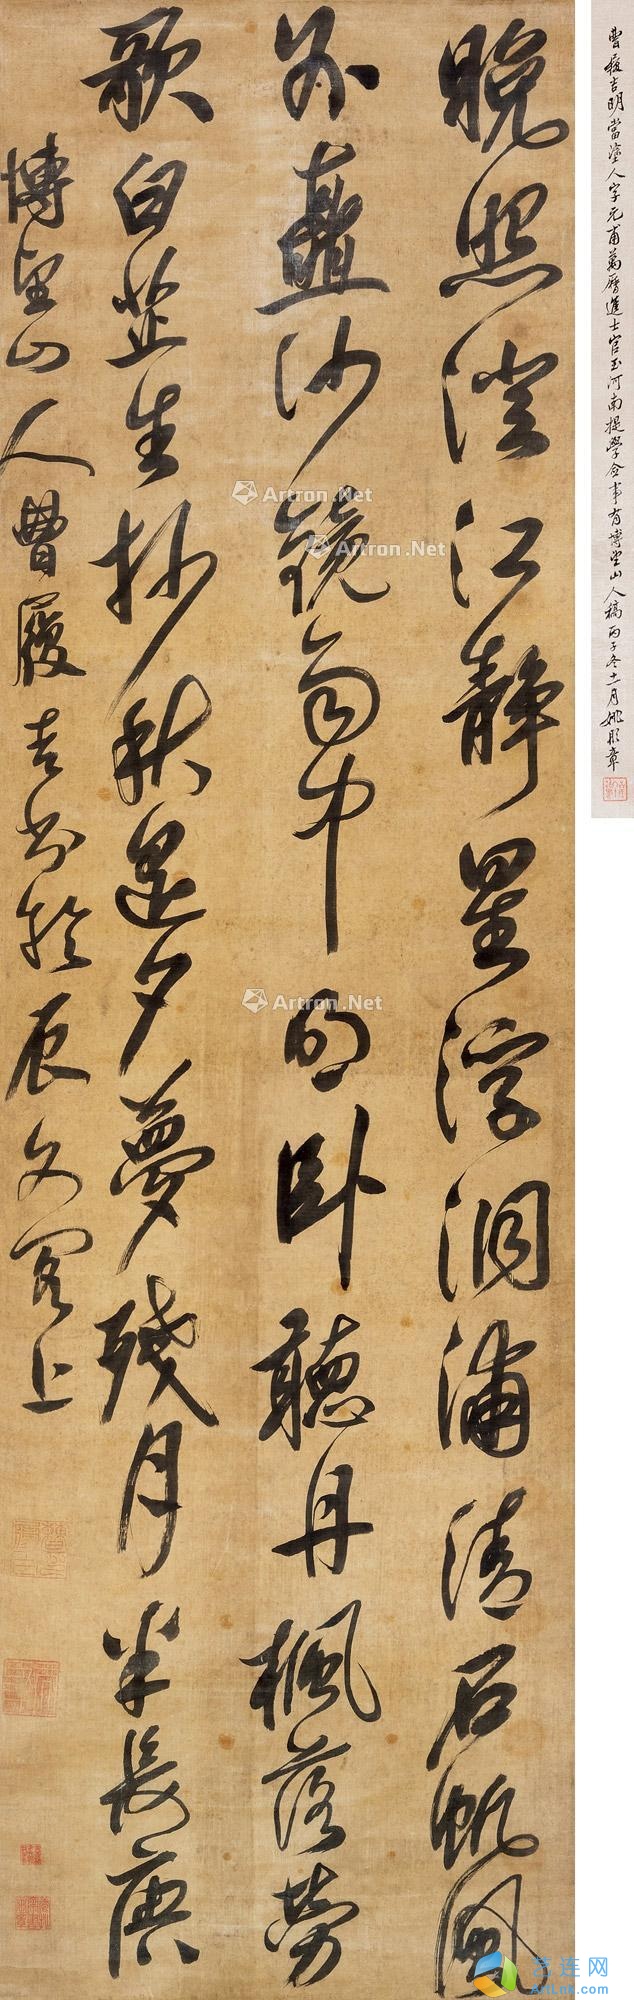 晚照澄江靜星浮洞浦清石帆風
外矗沙鏡雨中明卧聽丹楓落勞
歌白芷生杪秋遙夕夢殘月半長庚
博望山人曹履吉書於辰文閣上
曹履吉明當塗人字元甫萬曆進士官至河南提學僉事有博望山人稿丙子冬十一月姚彤章
Artron.Net
Artron.Net
Artron.Net
艺连网
ArtLnk.com